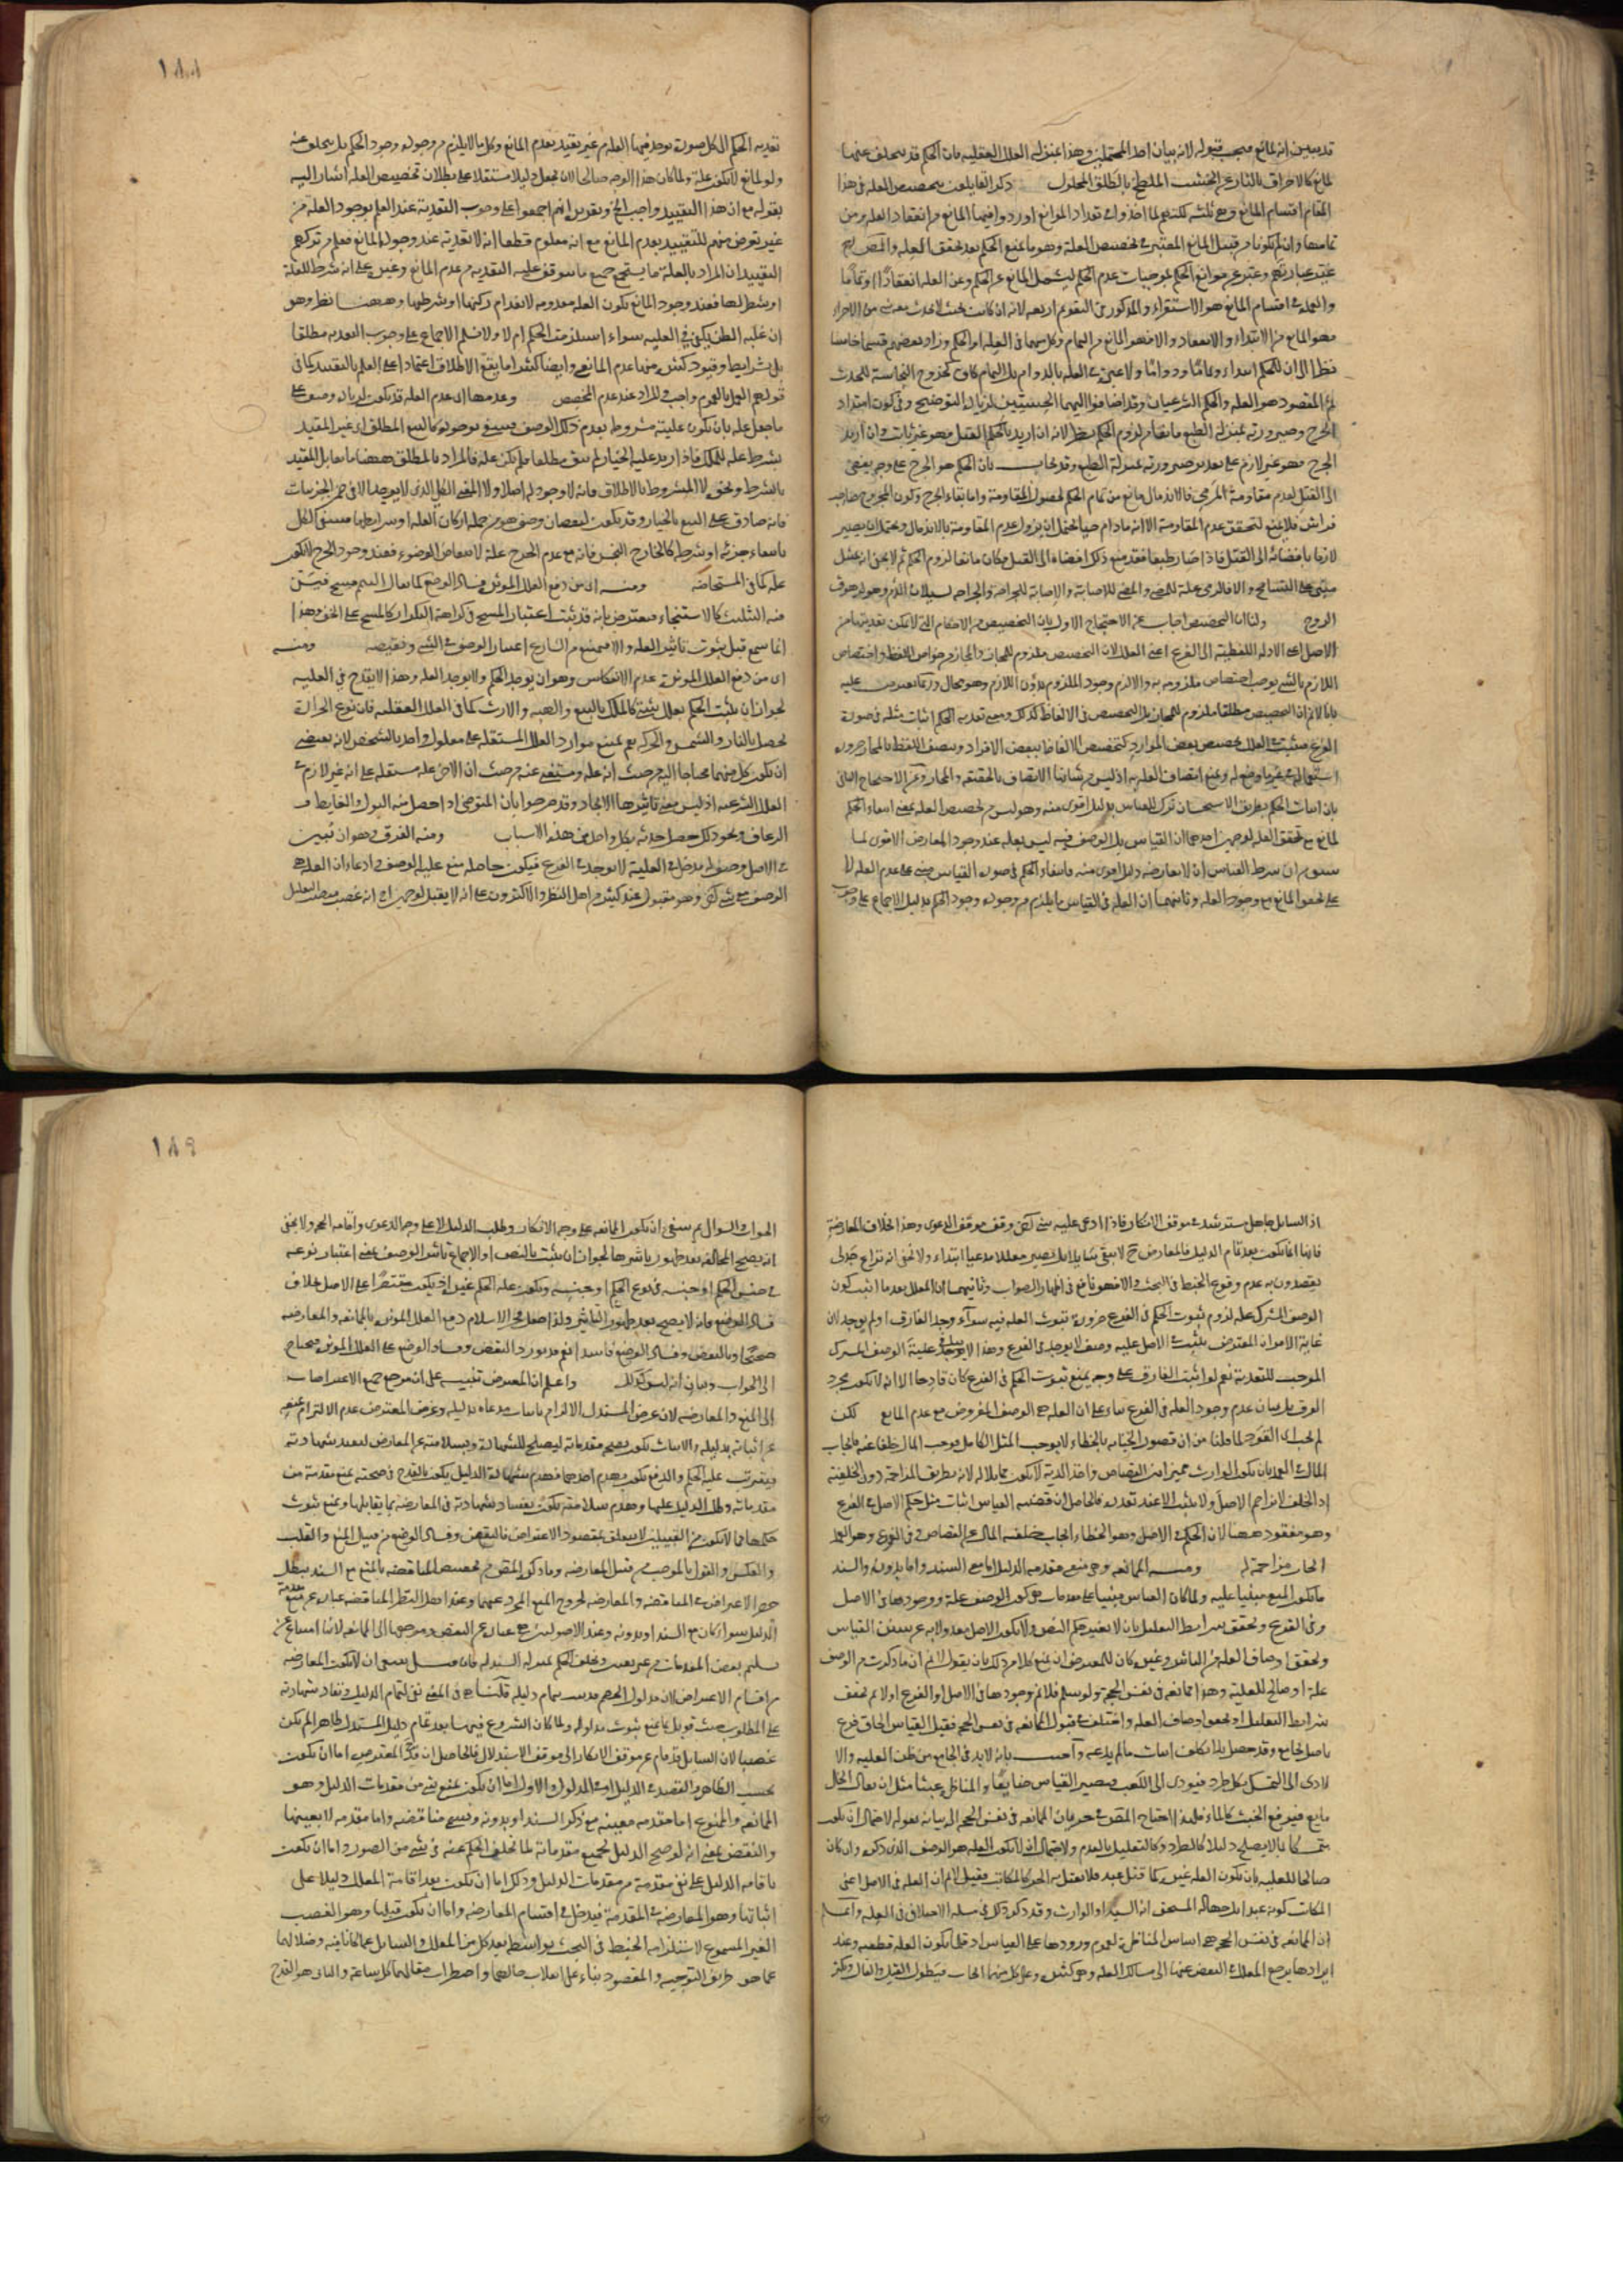 قد يبين انه لمانع فيجب قبوله لانه بيان احد المحتملين وهذا بمنزلة العلل العقلية فان الحكم قد يتخلف عنها
لمانع كالاحراق بالنار عن الخشب الملطخ بالطلق المحلول ذكر القايلون بتخصيص العله في هذا
المقام اقسام المانع وهي ثلثه لكنهم لما اخذوا في تعداد الموانع اوردوا فيها المانع من انعقاد العله ومن
تمامها وان لم يكونا من قبيل المانع المعتبر في تخصيص العلة وهو ما يمنع الحكم بعد تحقق العله والمص
غير عبارتهم وعبر عن موانع الحكم بموجبات عدم الحكم ليشمل المانع عن الحكم وعن العله انعقادا او تماما
والعمدة في اقسام المانع هو الاستقراء والمذكور في التقويم اربعه لانه ان كانت بحيث لا يحدث معه شي من الاجزاء
فهو المانع من الابتداء والانعقاد والا فهو المانع من التمام وكل منهما في العله او الحكم وزاد بعضهم قسما خامسا
نظرا الى ان للحكم ابتداء وتماما ودواما ولا عبرة في العله بالدوام بل التمام كاف كخروج النجاسة للحدث
ثم المقصود هو العله والحكم الشرعيان وقد اضافوا اليهما الحسيين لزيادة التوضيح وفي كون امتداد
الجرح وصيرورته بمنزلة الطبع مانعا من لزوم الحكم نظر لانه ان اريد بالحكم القتل فهو غير ثابت وان اريد
الجرح فهو غير لازم على تقدير صيرورته بمنزلة الطبع وقد يجاب بان الحكم هو الجرح على وجه يفضي
الى القتل لعدم مقاومة المرمي فالاندمال مانع من تمام الحكم لحصول المقاومة واما بقاء الجرح وكون المجروح صاحب
فراش فلا يمنع لتحقق عدم المقاومة الا انه ما دام حيا يحتمل ان يزول عدم المقاومة بالاندمال ويحتمل ان يصير
لازما بافضائه الى القتل فاذا صار طبعا فقد منع ذلك افضاه الى القتل فكان مانعا لزوم الحكم ثم لا يخفى ان هذا
مبني على التسامح والا فالرمي علة للمضي والمضي للاصابة والاصابة للجراحة والجراحة لسيلان الدم وهو لزهوق
الروح ولنا ان التخصيص اجاب عن الاحتجاج الاول بان التخصيص من الاحكام التي لا يمكن تعديتها من
الاصل اعني الادلة اللفظية الى الفرع اعني العلل لان التخصيص ملزوم للمجاز والمجاز من خواص اللفظ واختصاص
اللازم بالشي يوجب اختصاص ملزومه به والا لزم وجود الملزوم بدون اللازم وهو محال وربما يعترض عليه
بانا لا نم ان التخصيص مطلقا ملزوم للمجاز بل التخصيص في الالفاظ كذلك ومعنى تعدية الحكم اثبات مثله في صورة
الفرع فيثبت في العلل تخصيص ببعض الموارد كتخصيص الالفاظ ببعض الافراد ويتصف اللفظ بالمجاز ضرورة
استعماله في غير ما وضع له ويمتنع اتصاف العله به اذ ليس من شانها الاتصاف بالحقيقة والمجاز وعن الاحتجاج الثاني
بان اثبات الحكم بطريق الاستحسان ترك للقياس بدليل اقوى منه وهو ليس من تخصيص العله بمعنى انتفاء الحكم
لمانع مع تحقق العله لوجهين احدهما ان القياس بل الوصف فيه ليس بعله عند وجود المعارض الاقوى لما
سبق من ان شرط القياس ان لا يعارضه دليل اقوى منه فانتفاء الحكم في صورة القياس مبني على عدم العله لا
على تحقق المانع مع وجود العله وثانيهما ان العله في القياس ما يلزم من وجوده وجود الحكم بدليل الاجماع على وجوب
١٨٨
تعدية الحكم الى كل صورة توجد فيها العله من غير تقييد بعدم المانع وكل ما لا يلزم من وجوده وجود الحكم بل يتخلف عنه
ولو لمانع لا يكون علة ولما كان هذا الوجه صالحا لان يجعل دليلا مستقلا على بطلان تخصيص العله اشار اليه
بقوله مع ان هذا التقييد واجب الخ وتقريره انهم اجمعوا على وجوب التعدية عند العلم بوجود العله من
غير تعرض منهم للتقييد بعدم المانع مع انه معلوم قطعا انه لا تعدية عند وجود المانع فعلم من تركهم
التقييد ان المراد بالعلة ما يستجمع جميع ما يتوقف عليه التعدية من عدم المانع وغيره على انه شرط للعلة
او شطر لها فعند وجود المانع تكون العله معدومة لانعدام ركنها او شرطها وههنا نظر وهو
ان غلبه الظن يكفي في العلية سواء استلزمت الحكم ام لا ولا نسلم الاجماع على وجوب التعديه مطلقا
بل بشرايط وقيود كثيرة منها عدم المانع وايضا كثيرا ما يقع الاطلاق اعتمادا على العلم بالتقييد كما في
قولهم العمل بالعموم واجب والمراد عند عدم المخصص وعدمها اى عدم العله قد يكون لزيادة وصف على
ما جعل علة بان تكون عليته مشروطة بعدم ذلك الوصف فينتفي بوجوده كالبيع المطلق اى غير المقيد
بشرط علة للملك فاذا زيد عليه الخيار لم يبق مطلقا فلم يكن علة فالمراد بالمطلق ههنا ما يقابل المقيد
بالشرط ونحوه لا المشروط بالاطلاق فانه لا وجود له اصلا ولا المعنى الكلي الذي لا يوجد الا في ضمن الجزييات
فانه صادق على البيع بالخيار وقد يكون لنقصان وصف هو من جملة اركان العله او شرايطها فينتفي الكل
بانتفاء جزئه او شرطه كالخارج النجس فانه مع عدم الحرج علة لانتقاض الوضوء فعند وجود الحرج لا يكون
علة كما في المستحاضة ومنه اى من دفع العلل الموثرة فساد الوضع كما يقال التيمم مسح فيسن
فيه التثليث كالاستنجاء فيعترض بانه قد ثبت اعتبار المسح في كراهة التكرار كالمسح على الخف وهذا
انما يسمع قبل ثبوت تاثير العله والا فيمتنع من الشارع اعتبار الوصف في الشي ونقيضه ومنه
اى من دفع العلل الموثرة عدم الانعكاس وهو ان يوجد الحكم ولا توجد العله وهذا لا يقدح في العلية
لجواز ان يثبت الحكم بعلل شتى كالملك بالبيع والهبه والارث كما في العلل العقلية فان نوع الحرارة
تحصل بالنار والشمس والحركه نعم يمتنع توارد العلل المستقلة على معلول واحد بالشخص لانه يقتضي
ان يكون كل منهما محتاجا اليه من حيث انه علة ومستغنى عنه من حيث ان الاخر علة مستقلة على انه غير لازم في
العلل الشرعيه اذ ليس معنى تاثيرها الايجاد وقد صرحوا بان المتوضي اذا حصل منه البول والغايط و
الرعاف ونحو ذلك حصل حدثه بكل واحد من هذه الاسباب ومنه الفرق وهو ان تبين
في الاصل وصف له مدخل في العلية لا يوجد في الفرع فيكون حاصله منع علية الوصف وادعاء ان العله هي
الوصف مع شي اخر وهو مقبول عند كثير من اهل النظر والاكثرون على انه لا يقبل لوجهين احدهما انه غصب منصب التعليل
اذ السايل جاهل مسترشد في موقف الانكار فاذا ادعى عليه شي اخر وقف موقف الدعوى وهذا بخلاف المعارضة
فانها انما تكون بعد تمام الدليل فالمعارض ح لا يبقى سايلا بل يصير معللا مدعيا ابتداء ولا يخفى انه نزاع جدلى
يقصدون به عدم وقوع الخبط في البحث والا فهو نافع في اظهار الصواب وثانيهما ان المعلل بعد ما اثبت كون
الوصف المشترك علة لزوم ثبوت الحكم في الفرع ضرورة ثبوت العله فيه سواء وجد الفارق او لم يوجد لان
غاية الامر ان المعترض يثبت في الاصل علية وصف لا يوجد في الفرع وهذا لا ينافي علية الوصف المشترك
الموجب للتعدية نعم لو اثبت الفارق على وجه يمنع ثبوت الحكم في الفرع كان قادحا الا انه لا يكون مجرد
الفرق بل بيان عدم وجود العله في الفرع بناء على ان العله هي الوصف المفروض مع عدم المانع لكن
لم يجب اى القود لما قلنا من ان قصور الجناية بالخطاء لا يوجب المثل الكامل فوجب المال خلفا عنه فايجاب
المال في العمد بان يكون الوارث مخيرا بين القصاص واخذ الدية لا يكون مماثلا له لانه بطريق المزاحمة دون الخلفية
اذ الخلف لا يزاحم الاصل ولا يثبت الا عند تعذره فالحاصل ان قضية القياس اثبات مثل حكم الاصل في الفرع
وهو مفقود ههنا لان الحكم في الاصل وهو الخطاء ايجاب خلفية المال عن القصاص وفي الفرع وهو العمد
ايجابه مزاحمة له ومنه الممانعه وهي منع مقدمة الدليل اما مع السند او بدونه والسند
ما يكون المنع مبنيا عليه ولما كان القياس مبنيا على مقدمات هي كون الوصف علة ووجودها في الاصل
وفي الفرع وتحقق شرايط التعليل بان لا يغير حكم النص ولا يكون الاصل معدولا به عن سنن القياس
وتحقق اوصاف العله من التاثير وغيره كان للمعترض ان يمنع كلا من ذلك بان يقول لا نم ان ما ذكرت من الوصف
علة او صالح للعلية وهذا ممانعه في نفس الحجة ولو سلم فلا نم وجودها في الاصل او الفرع او لا نم تحقق
شرايط التعليل او تحقق اوصاف العله واختلف في قبول الممانعه في نفس الحجه فقيل القياس الحاق فرع
باصل بجامع وقد حصل فلا يكلف اثبات ما لم يدعه واجيب بانه لا بد في الجامع من ظن العلية والا
لادى الى التمسك بكل طرد فيودى الى اللعب فيصير القياس ضايعا والمناظرة عبثا مثل ان يقال الخل
مايع فيرفع الخبث كالماء فلهذا احتاج المص في جريان الممانعة في نفس الحجه الى بيانه بقوله لاحتمال ان يكون
متمسكا بما لا يصلح دليلا كالطرد وكالتعليل بالعدم ولاحتمال ان لا يكون العله هو الوصف الذي ذكره وان كان
صالحا للعليه بان تكون العله غيره كما في قتل عبد فلا يقتل به الحر كالمكاتب فيقول لا نم ان العله في الاصل اعني
المكاتب كونه عبدا بل جهالة المستحق انه السيد او الوارث وقد ذكروا ذلك في مسلة الاختلاف في العله واعلم
ان الممانعه في نفس الحجه هي اساس المناظرة لعموم ورودها على القياس اذ قلما تكون العله قطعيه وعند
ايرادها يرجع المعلل في التقصي عنها الى مسالك العله وهي كثيرة وعلى كل منها ابحاث فيطول القيل والقال ويكثر
١٨٩
الجواب والسوال ثم ينبغي ان تكون الممانعه على وجه الانكار وطلب الدليل لا على وجه الدعوى واقامة الحجه ولا يخفى
انه يصح الممانعه بعد ظهور تاثيرها لجواز ان يثبت بالنص او الاجماع تاثير الوصف بمعنى اعتبار نوعه
في جنس الحكم او جنسه في نوع الحكم او جنسه ويكون علة الحكم غيره او يكون مقتصرا على الاصل بخلاف
فساد الوضع فانه لا يصح بعد ظهور التاثير ولذا جعل فخر الاسلام دفع العلل الموثرة بالممانعه والمعارضه
صحيحا وبالنقض وفساد الوضع فاسدا نعم قد يورد النقض وفساد الوضع على العلل الموثرة فيحتاج
الى الجواب وبيان انه ليس كذلك واعلم ان المعترض تنبيه على ان مرجع جميع الاعتراضات
الى المنع والمعارضه لان غرض المستدل الالزام باثبات مدعاه بدليله وغرض المعترض عدم الالتزام بمنعه
عن اثباته بدليله والاثبات يكون بصحة مقدماته ليصلح للشهادة وبسلامته عن المعارض لتنفذ شهادته
فيترتب عليه الحكم والدفع يكون بهدم احدهما فهدم شهادة الدليل يكون بالقدح في صحته بمنع مقدمة من
مقدماته وطلب الدليل عليها وهدم سلامته يكون بفساد شهادته في المعارضه بما يقابلها ويمنع ثبوت
حكمها فما لا يكون من القبيلين لا يتعلق بمقصود الاعتراض فالنقض وفساد الوضع من قبيل المنع والقلب
والعكس والقول بالموجب من قبيل المعارضه وما ذكره المص من تخصيص المناقضه بالمنع مع السند يبطل
حصر الاعتراض في المناقضه والمعارضه لخروج المنع المجرد عنهما وعند اهل النظر المناقضه عبارة عن منع مقدمة
الدليل سواء كان مع السند او بدونه وعند الاصوليين هي عبارة عن النقض ومرجعها الى الممانعه لانها امتناع عن
تسليم بعض المقدمات من غير تعيين وتخلف الحكم بمنزلة السند له فان قيل ينبغي ان لا تكون المعارضه
من اقسام الاعتراض لان مدلول الخصم قد ثبت بتمام دليله قلنا هي في المعنى نفى لتمام الدليل ونفاذ شهادته
على المطلوب حيث قوبل بما يمنع ثبوت مدلوله ولما كان الشروع فيها بعد تمام دليل المستدل ظاهرا لم يكن
غصبا لان السايل قد قام عن موقف الانكار الى موقف الاستدلال فالحاصل ان قدح المعترض اما ان يكون
بحسب الظاهر والقصد في الدليل او في المدلول والاول اما ان يكون بمنع شي من مقدمات الدليل وهو
الممانعة والممنوع اما مقدمه معينه مع ذكر السند او بدونه وتسمى مناقضه واما مقدمة لا بعينها
والنقض بمعنى انه لو صح الدليل بجميع مقدماته لما تخلف الحكم عنه في شي من الصور واما ان يكون
باقامة الدليل على نفي مقدمة من مقدمات الدليل وذلك اما ان يكون بعد اقامة المعلل دليلا على
اثباتها وهو المعارضة في المقدمة فيدخل في اقسام المعارضه واما ان يكون قبلها وهو الغصب
الغير المسموع لاستلزامه الخبط في البحث بواسطة بعد كل من المعلل والسايل عما كانا فيه وضلالهما
عما هو طريق التوجيه والمقصود بناء على انقلاب حالهما واضطراب مقالهما كل ساعة والثاني هو القدح